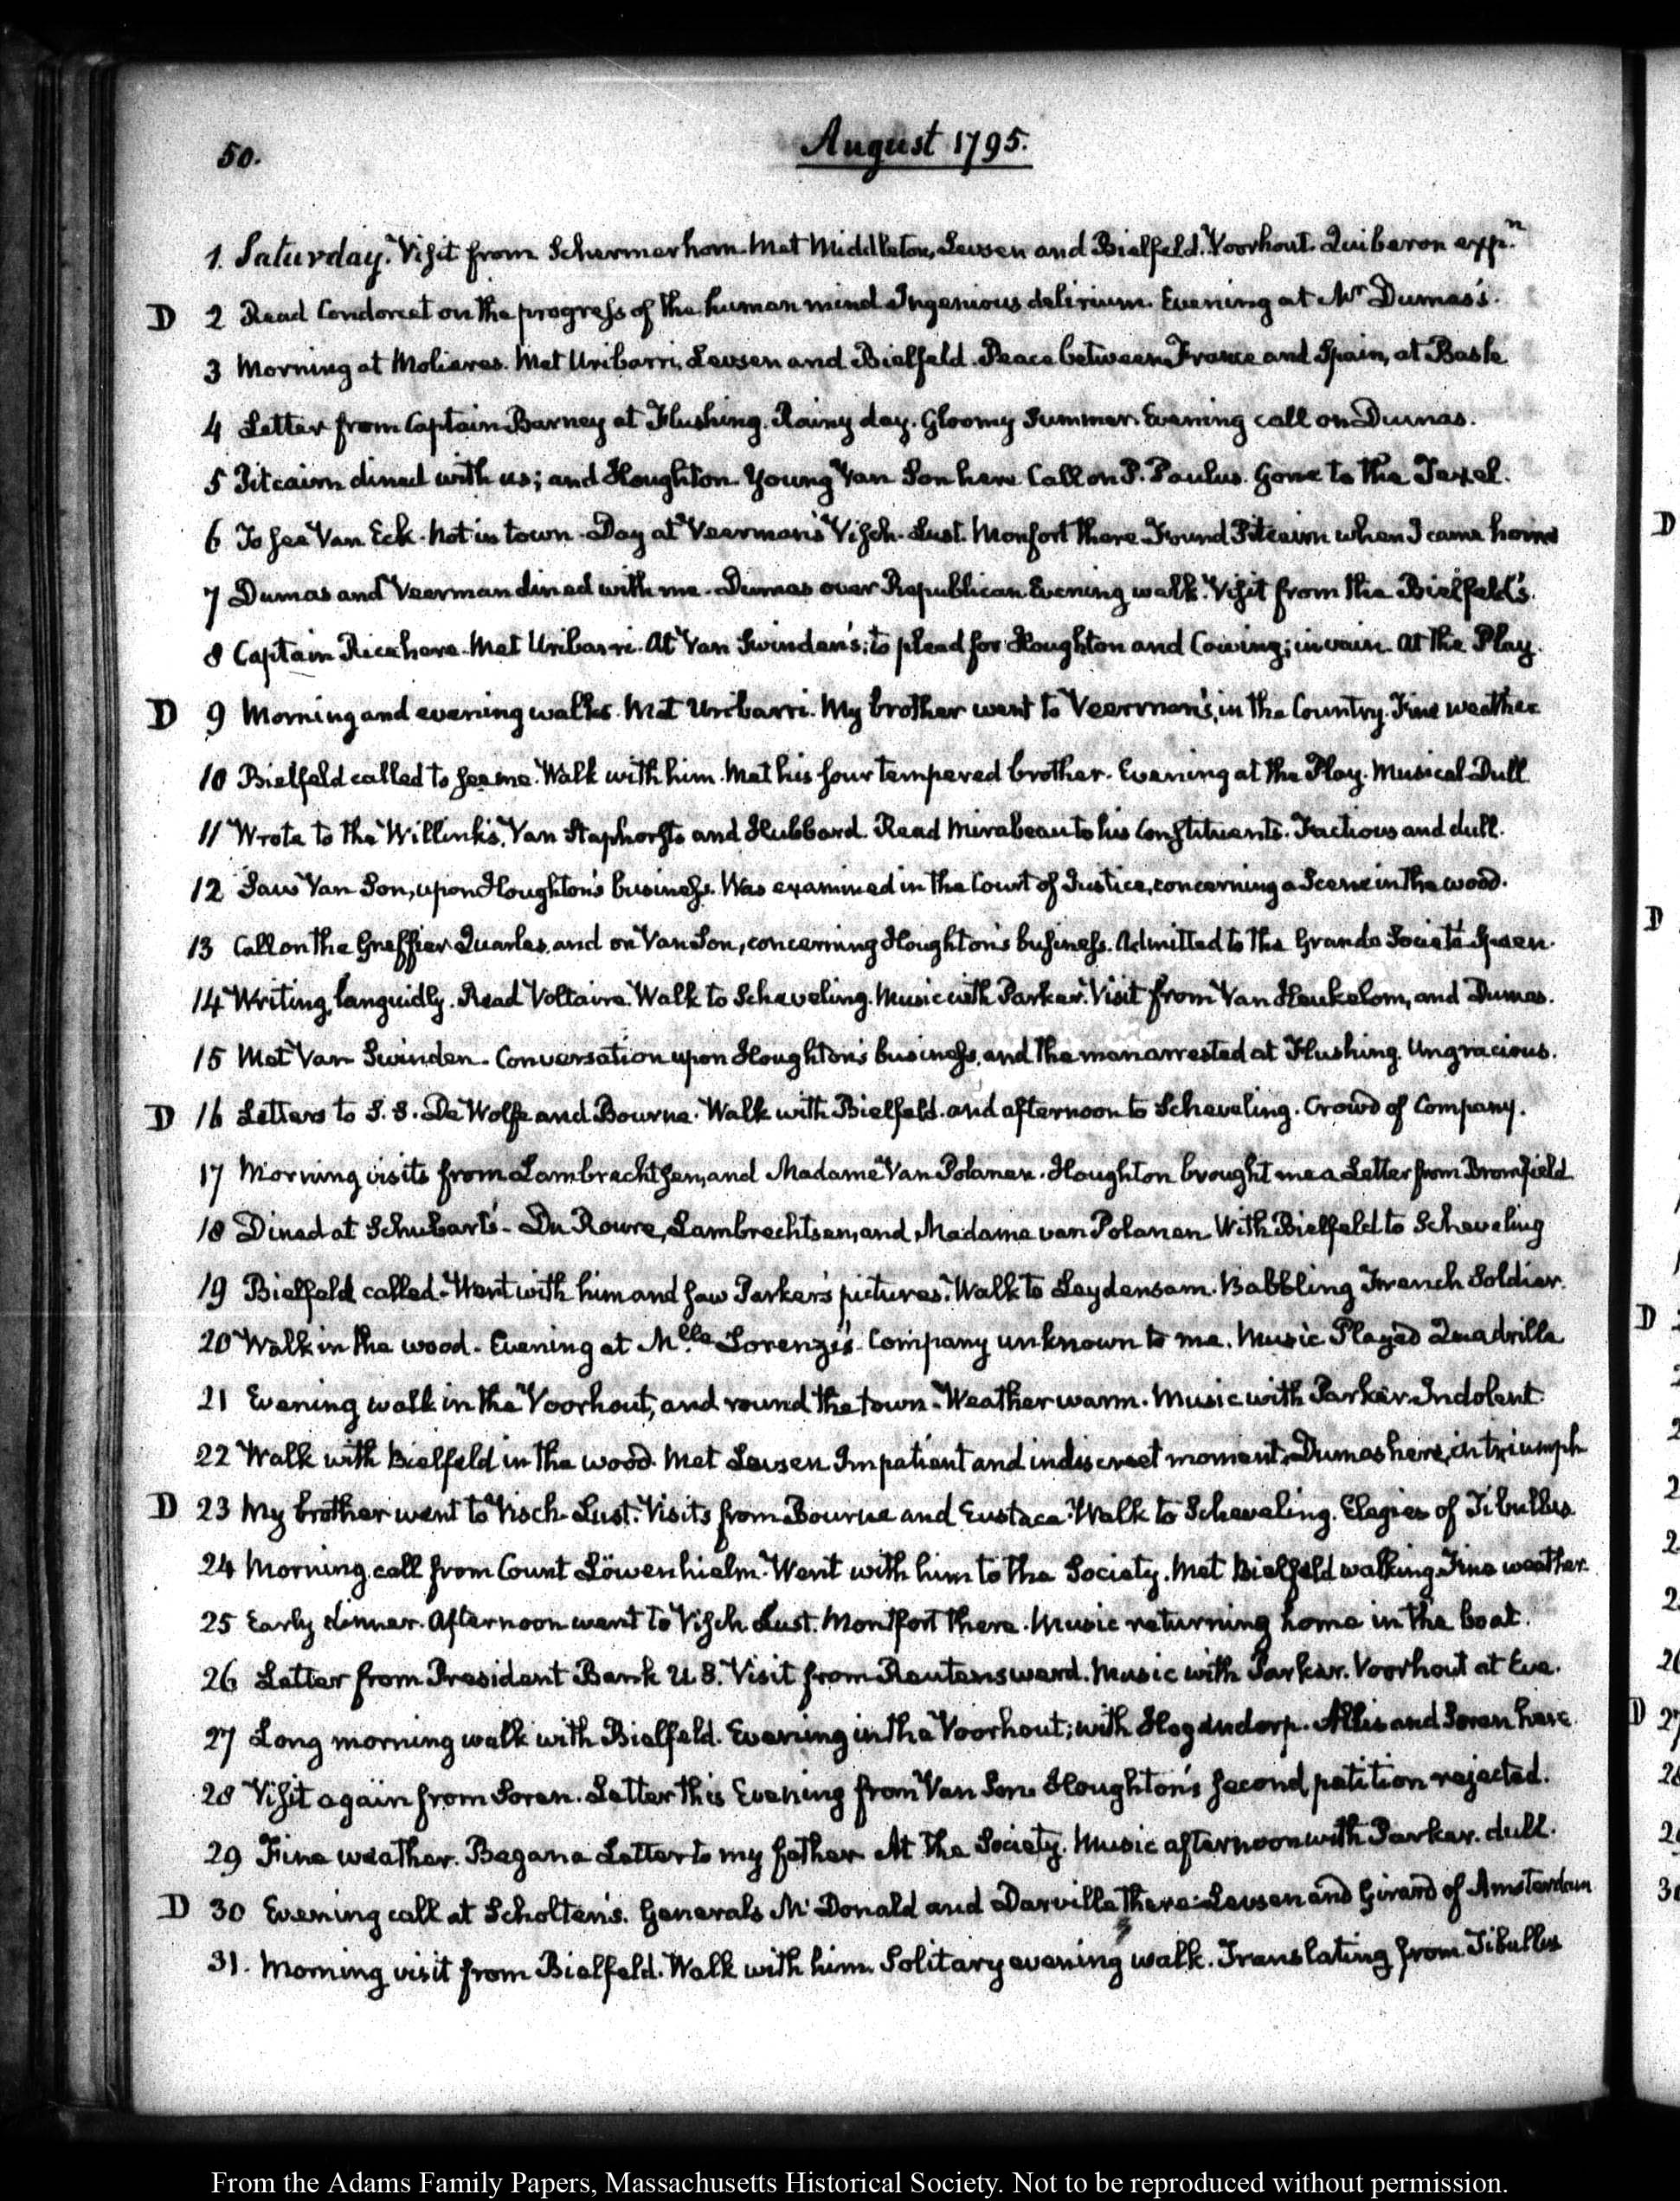 50.
August 1795.
1. Saturday. Visit from Schermerhorn. Met Middleton, Levsen and Bielfeld. Voorhout. Quiberon expn
D 2 Read Condorcet on the progress of the human mind Ingenious delirium. Evening at Mr Dumas's.
3 Morning at Molieres. Met Uribarri, Levsen and Bielfeld. Peace between France and Spain, at Basle
4 Letter from Captain Barney at Flushing. Rainy day. Gloomy Summer. Evening call on Dumas.
5 Pitcairn dined with us; and Houghton. Young Van Son here Call on P. Paulus. Gone to the Texel.
6 To see Van Eck. not in town. Day at Veerman's Visch-Lust. Monfort there Found Pitcairn when I came home
7 Dumas and Veerman dined with me. Dumas over Republican Evening walk. Visit from the Bielfeld's.
8 Captain Rice here. Met Uribarri. At Van Swinden's; to plead for Houghton and Cowing; in vain. At the Play.
D 9 Morning and evening walks. Met Uribarri. My brother went to Veerman's, in the Country. Fine weather
10 Bielfeld called to see me. Walk with him. Met his sour tempered brother. Evening at the Play. Musical Dull
11 Wrote to the Willink's, Van Staphorsts and Hubbard. Read Mirabeau to his Constituents. Factious and dull.
12 Saw Van Son, upon Houghton's business. Was examined in the Court of Justice, concerning a Scene in the wood.
13 Call on the Greffier Quarles, and on Van Son, concerning Houghton's business. Admitted to the Grande Société
14 Writing, languidly. Read Voltaire. Walk to Scheveling. Music with Parker. Visit from Van Heukelom, and Dumas.
15 Met Van Swinden. Conversation upon Houghton's business, and the man arrested at Flushing. Ungracious.
D 16 Letters to S. S. De Wolfe and Bourne. Walk with Bielfeld. and afternoon to Scheveling. Crowd of Company.
17 Morning visits from Lambrechtsen, and Madame Van Polanen. Houghton brought me a Letter from Bromfield
18 Dined at Schubart's - Du Roure, Lambrechtsen, and Madame van Polanen. With Bielfeld to Scheveling
19 Bielfeld called. Went with him and saw Parker's pictures. Walk to Leydensam. Babbling French Soldier.
20 Walk in the wood. Evening at Mlle Lorenzi's. Company unknown to me. Music Played Quadrille
21 Evening walk in the Voorhout, and round the town. Weather warm. Music with Parker. Indolent
22 Walk with Bielfeld in the wood. Met Levsen Impatient and indiscreet moment. Dumas here, in triumph
D 23 My brother went to Visch-Lust. Visits from Bourne and Eustace. Walk to Scheveling. Elegies of Tibullus.
24 Morning call from Count Löwenhielm. Went with him to the Society. Met Bielfeld walking. Fine weather.
25 Early dinner. Afternoon went to Visch Lust. Montfort there. Music returning home in the boat.
26 Letter from President Bank U. S. Visit from Reutensward. Music with Parker. Voorhout at Eve.
27 Long morning walk with Bielfeld. Evening in the Voorhout; with Hogendorp. Allis and Soren here.
28 Visit again from Soren. Letter this Evening from Van Son. Houghton's second petition rejected.
29 Fine weather. Began a Letter to my father At the Society. Music afternoon with Parker. dull.
D 30 Evening call at Scholten's. Generals McDonald and Darville there. Levsen and Girard of Amsterdam
31. Morning visit from Bielfeld. Walk with him. Solitary evening walk. Translating from Tibullus
From the Adams Family Papers, Massachusetts Historical Society. Not to be reproduced without permission.